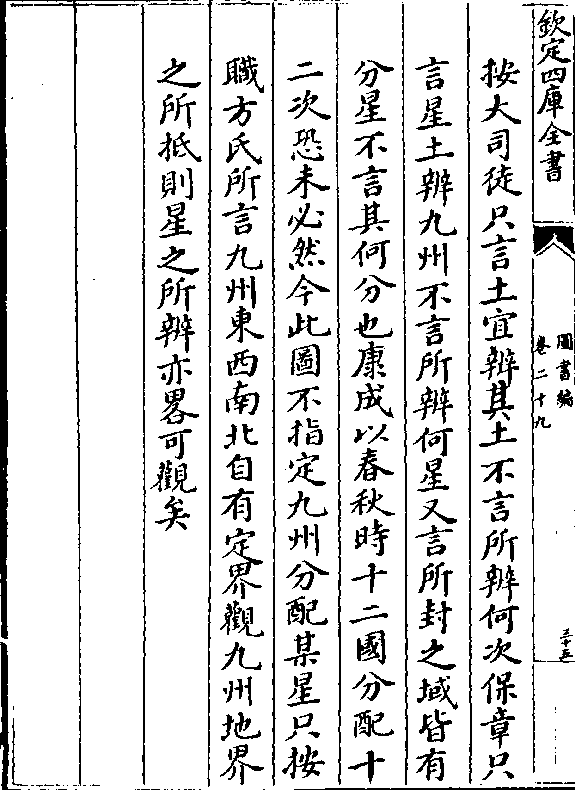 欽定四庫全書
圖書編
卷二十九
三十五
按大司徒只言土宜辨其土不言所辨何次保章只
言星土辨九州不言所辨何星又言所封之域皆有
分星不言其何分也康成以春秋時十二國分配十
二次恐未必然今此圖不指定九州分配某星只按
職方氏所言九州東西南北自有定界觀九州地界
之所抵則星之所辨亦畧可觀矣